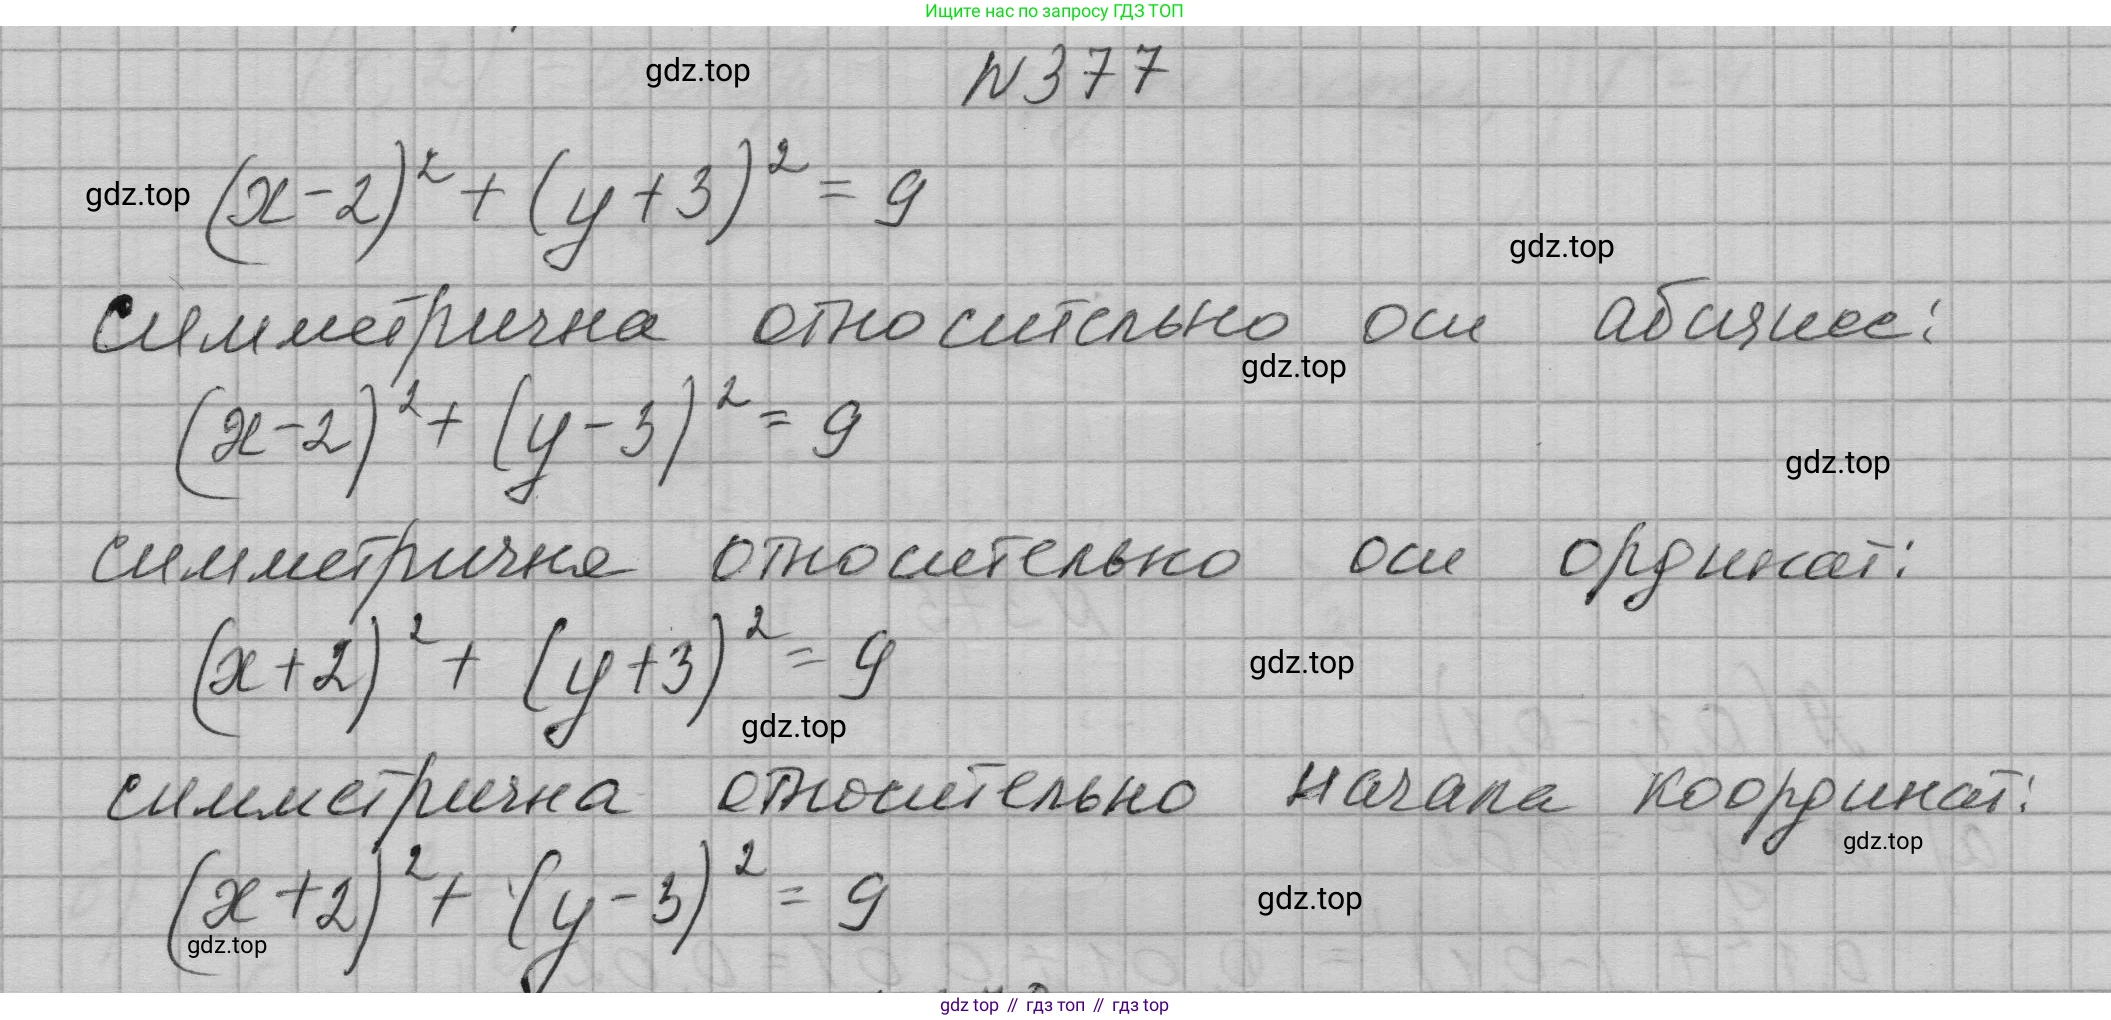 Ищите нас по запросу ГДЗ ТОП
gdz.top N377
gdz.top (x-2)² + (y+3)² = 9
gdz.top
симметрична относительно оси абсцисс:
gdz.top
(x-2)² + (y-3)² = 9
gdz.top
симметрична относительно оси ординат:
(x+2)² + (y+3)² = 9
gdz.top
gdz.top
симметрична относительно начала координат:
gdz.top
(x+2)² + (y-3)² = 9
gdz.top
gdz.top
gdz top // гдз топ // гдз top